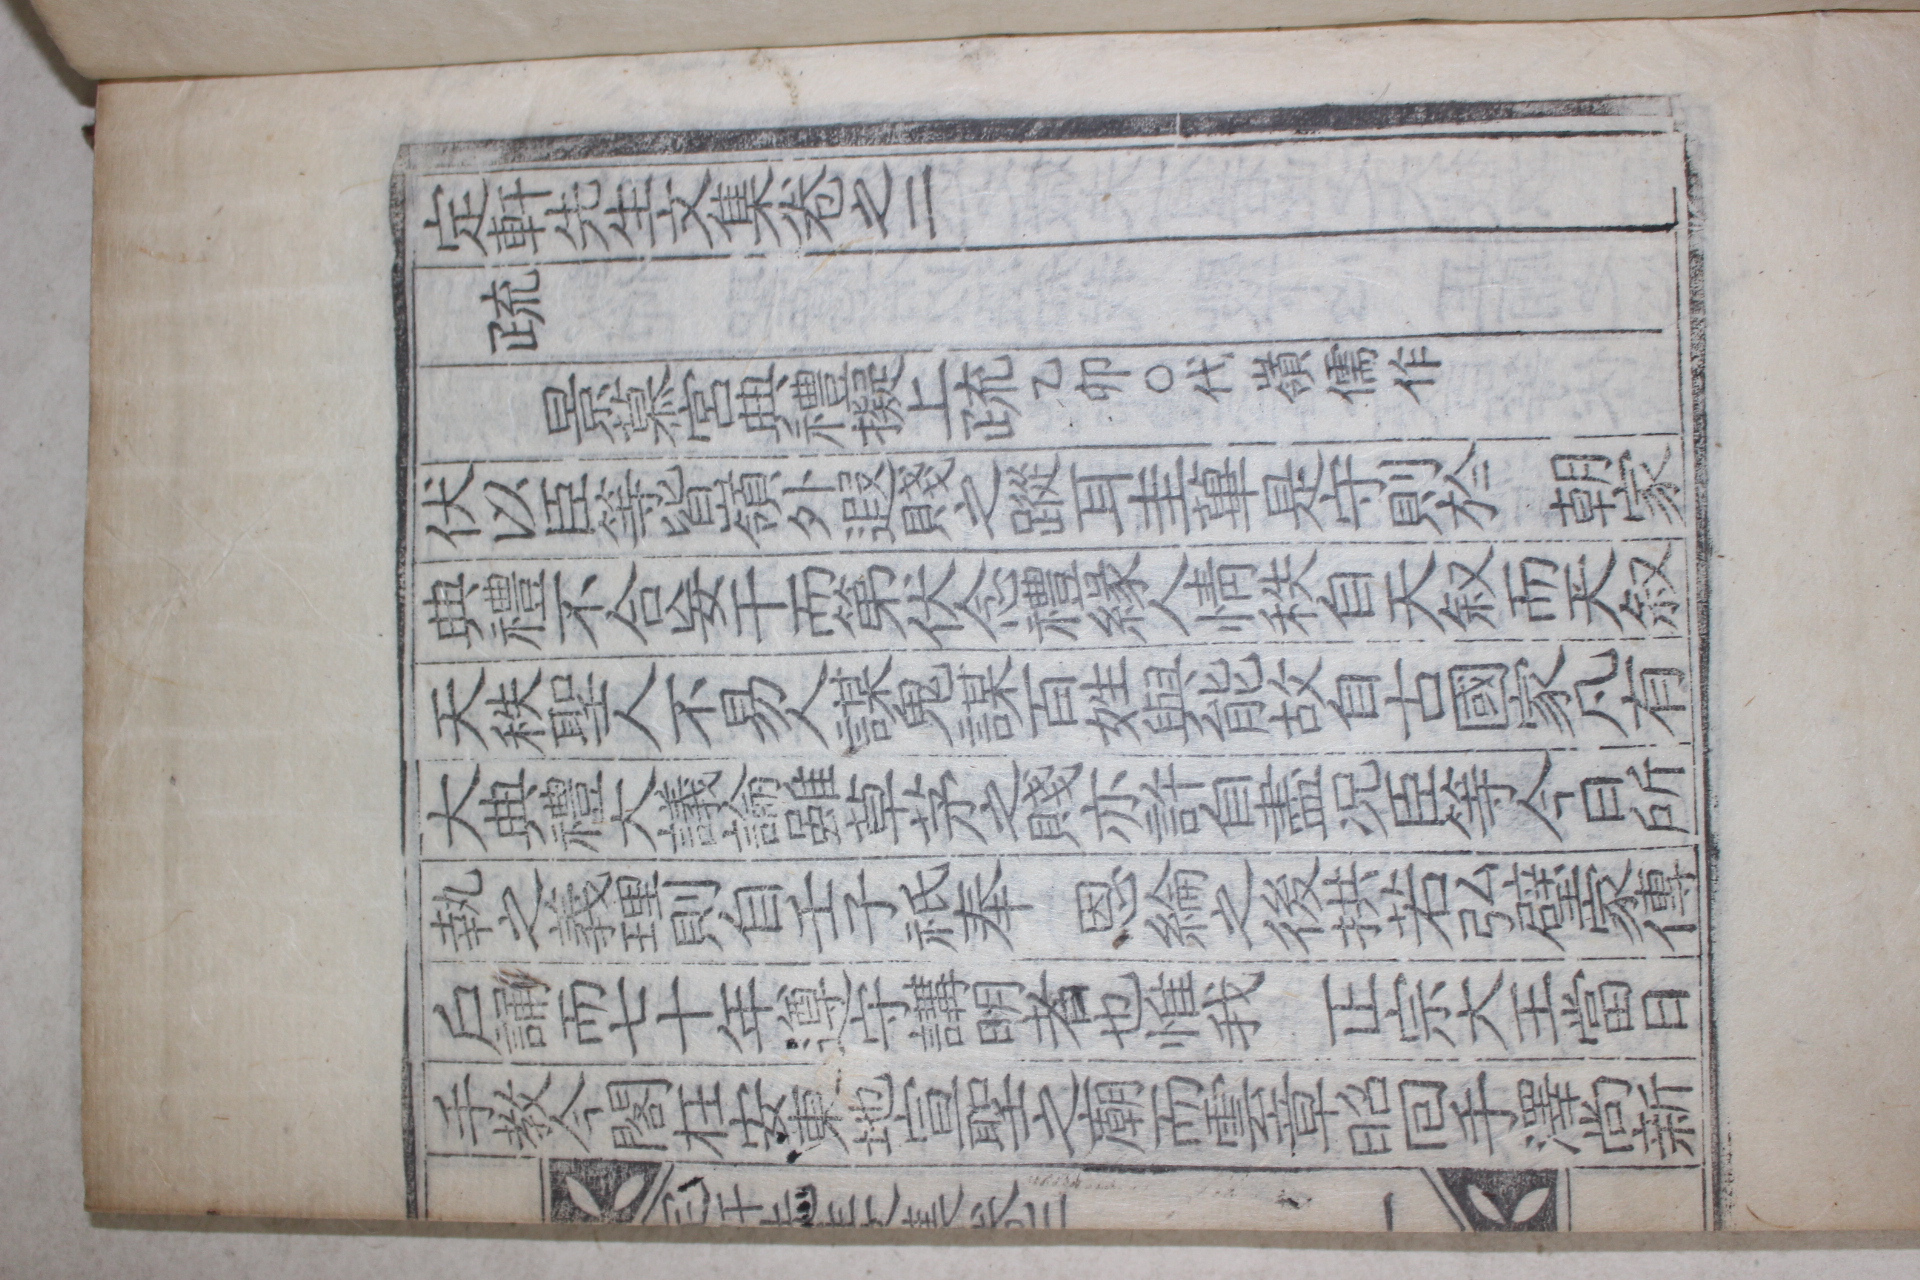 定軒先生文集卷之二
疏
景慕宮典禮擬上疏 乙卯○代嶺儒作
伏以臣等皆嶺外遐賤之蹤耳圭蓽是守則於 朝家
典禮不合妄干而第伏念禮緣人情秩自天叙而天叙
天秩聖人不易人謀鬼謀百姓與能故自古國家凡有
大典禮大議論雖草茅之賤亦許自盡况臣等今日所
執之義理則自壬子祗奉 恩綸之後拱若弘璧家傳
戶誦而七十年遵守講明者也惟我 正宗大王當日
手敎今閣在安東地宣聖之廟而雲章昭回手澤尙新